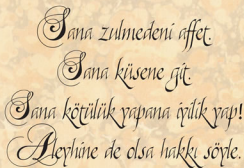 Sana zulmedeni affet.
Sana küsene git.
Sana kötülük yapana iyilik yap!
Aleyhine de olsa hakkı söyle.